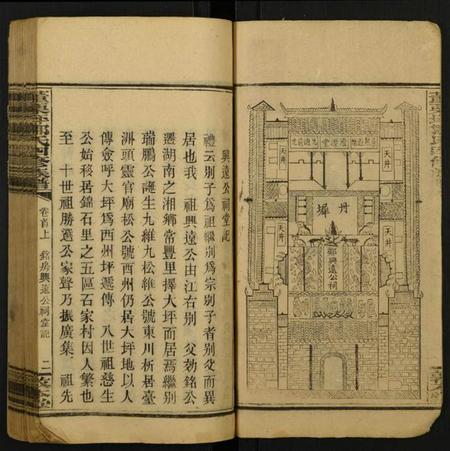 興遠公祠堂記
禮云別子爲祖繼別爲宗別子者別爻而異
居也我　祖興遠公由江右別　父効銘公
遷湖南之湘鄉常豐里擇大坪而居焉繼別
瑞鵬公誕生九維九松維公號東川析居臺
洲頭靈官廟松公號西州仍居大坪地以人
傳僉呼大坪爲西州坪遞傳　八世祖慈生
公始移居錦石里之五區石家村因人繁也
至　十世祖勝選公家聲乃振廣集　祖先
卷首上　銘房興遠公祠堂記　二
天井
天井
丹墀
天井
天井
鄧興遠公祠